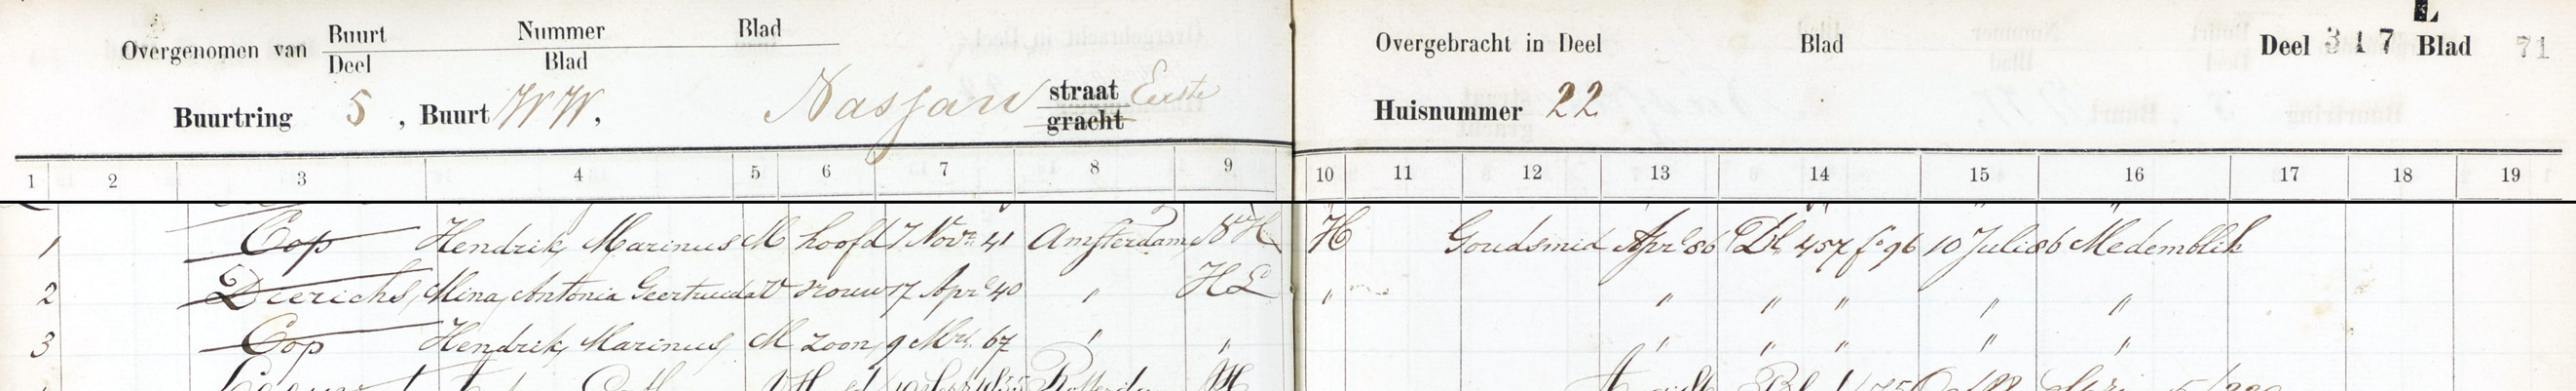 Overgenomen van Buurt Nummer Blad
Deel Blad
Overgebracht in Deel Blad Deel 317 Blad 71
Buurtring 5, Buurt WW, Nassau straat Eerste
gracht
Huisnummer 22
1 2 3 4 5 6 7 8 9 10 11 12 13 14 15 16 17 18 19
1 Cop Hendrik Marinus M hoofd 7 Nov. 41 Amsterdam H Goudsmid Apr 86 Dl 457 fo 96 10 Juli 86 Medemblik
2 Dierichs, Mina, Antonia Geertruida V vrouw 17 Apr 40 " HL " " " " " "
3 Cop Hendrik Marinus, M zoon, 9 Mrt. 67 " " " " " " "